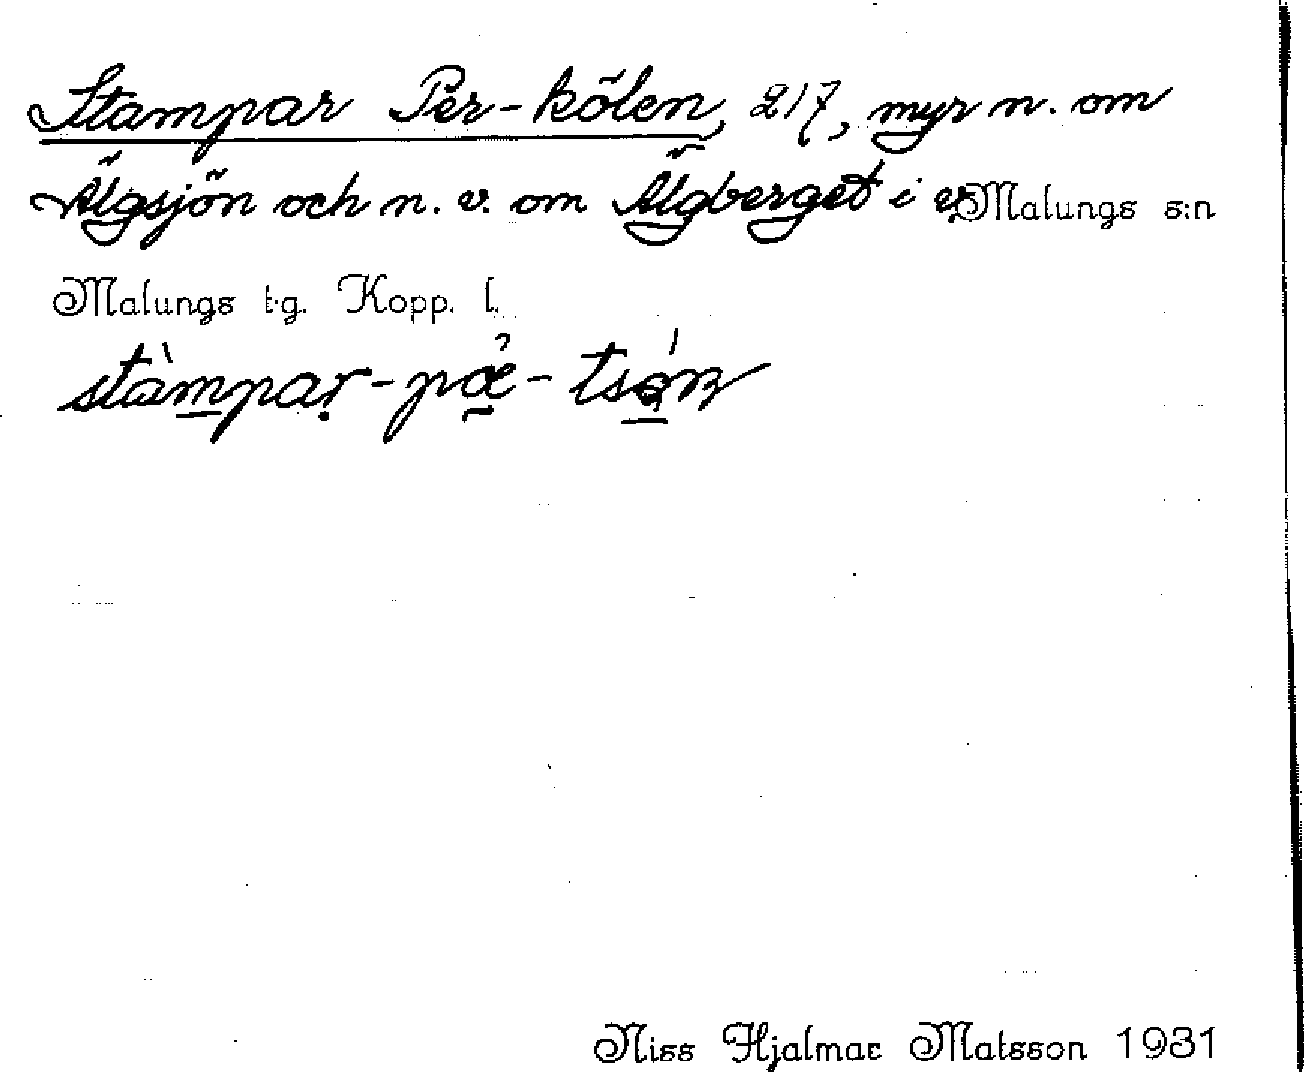 Stampar Per-kölen, 217, myr n. om
Älgsjön och n. v. om Älgberget i v Malungs s:n
Malungs t.g. Kopp. l.
stàmpar-pæ-tsón
Niss Hjalmar Matsson 1931